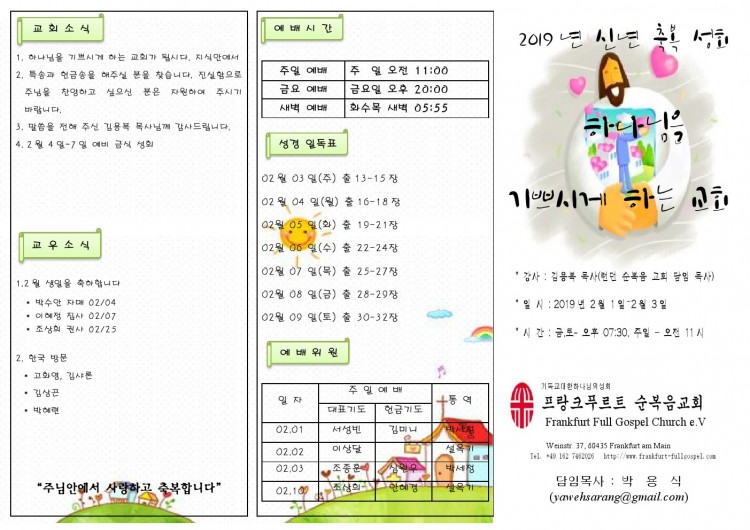 교 회 소 식
1. 하나님을 기쁘시게 하는 교회가 됩시다. 지식안에서
2. 특송과 헌금송을 해주실 분을 찾습니다. 진실함으로
주님을 찬양하고 싶으신 분은 자원하여 주시기
바랍니다.
3. 말씀을 전해 주신 김용복 목사님께 감사드립니다.
4. 2 월 4 일-7 일 예비 금식 성회
교 우 소 식
1.2 월 생일을 축하합니다
• 박수안 자매 02/04
• 이혜정 집사 02/07
• 조상희 권사 02/25
2. 한국 방문
• 고화영, 김샤론
• 김상끈
• 박혜련
“주님안에서 사랑하고 축복합니다”
예 배 시 간
주일 예배 주 일 오전 11:00
금요 예배 금요일 오후 20:00
새벽 예배 화수목 새벽 05:55
성경 일독표
02 월 03 일(주) 출 13-15 장
02 월 04 일(월) 출 16-18 장
02 월 05 일(화) 출 19-21장
02 월 06 일(수) 출 22-24장
02 월 07 일(목) 출 25-27장
02 월 08 일(금) 출 28-29장
02 월 09 일(토) 출 30-32장
예 배 위 원
일 자 주 일 예 배 통 역
대표기도 헌금기도
02.01 서성빈 김미니
02.02 이상달 설옥기
02.03 조중훈 심원우 박세정
02.10 조상희 안혜경 설옥기
2019 년 신년 축복 성회
하나님을
기쁘시게 하는 교회
* 강사 : 김용복 목사(런던 순복음 교회 담임 목사)
* 일 시 : 2019 년 2 월 1 일~2 월 3 일
* 시 간 : 금,토- 오후 07:30, 주일 - 오전 11 시
기독교대한하나님의성회
프랑크푸르트 순복음교회
Frankfurt Full Gospel Church e.V
Weinstr. 37, 60435 Frankfurt am Main
Tel. +49 162 7462026 http://www.frankfurt-fullgospel.com
담임목사 : 박 용 식
(yawehsarang@gmail.com)